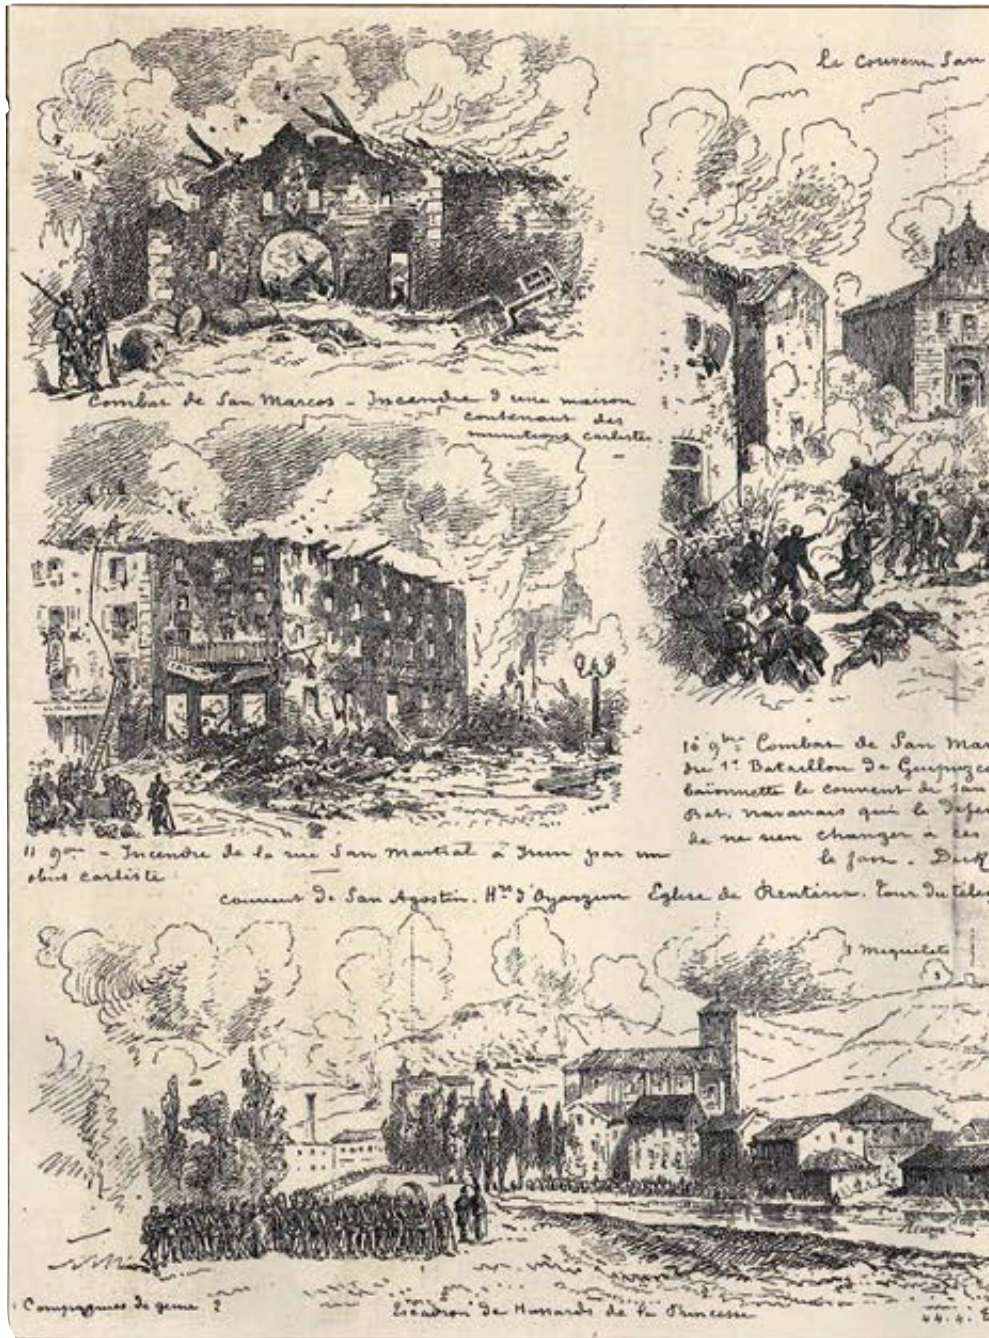 le couvent San
Combat de San Marcos - Incendie d'une maison
contenant des
munitions carlistes
10 9bre Combat de San Mar
du 1er Bataillon de Guipuzco
baionnette le couvent de San
Bat. navarrais qui le défen
de ne rien changer a ces
le faire. Dick
11 9bre - Incendie de la rue San Martial à Irun par un
obus carliste
couvent de San Agostin. Hres d'Oyarzun Eglise de Renteria. Tour du télég
3 Miquelets
Compagnies de genie 2
Escadron de Hussards de la Princesse
44. 4.